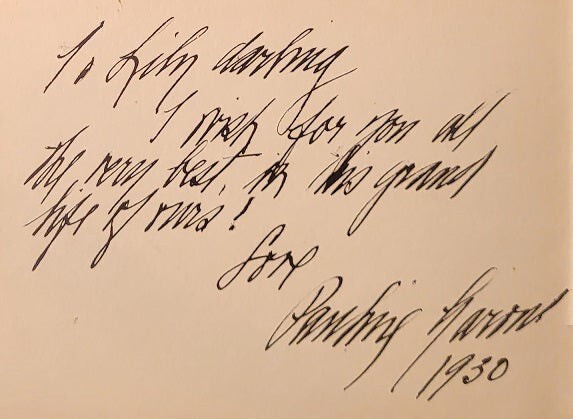 To Lily darling
I wish for you all
the very best, in this grand
life of ours!
Love
Pauline Garon
1930